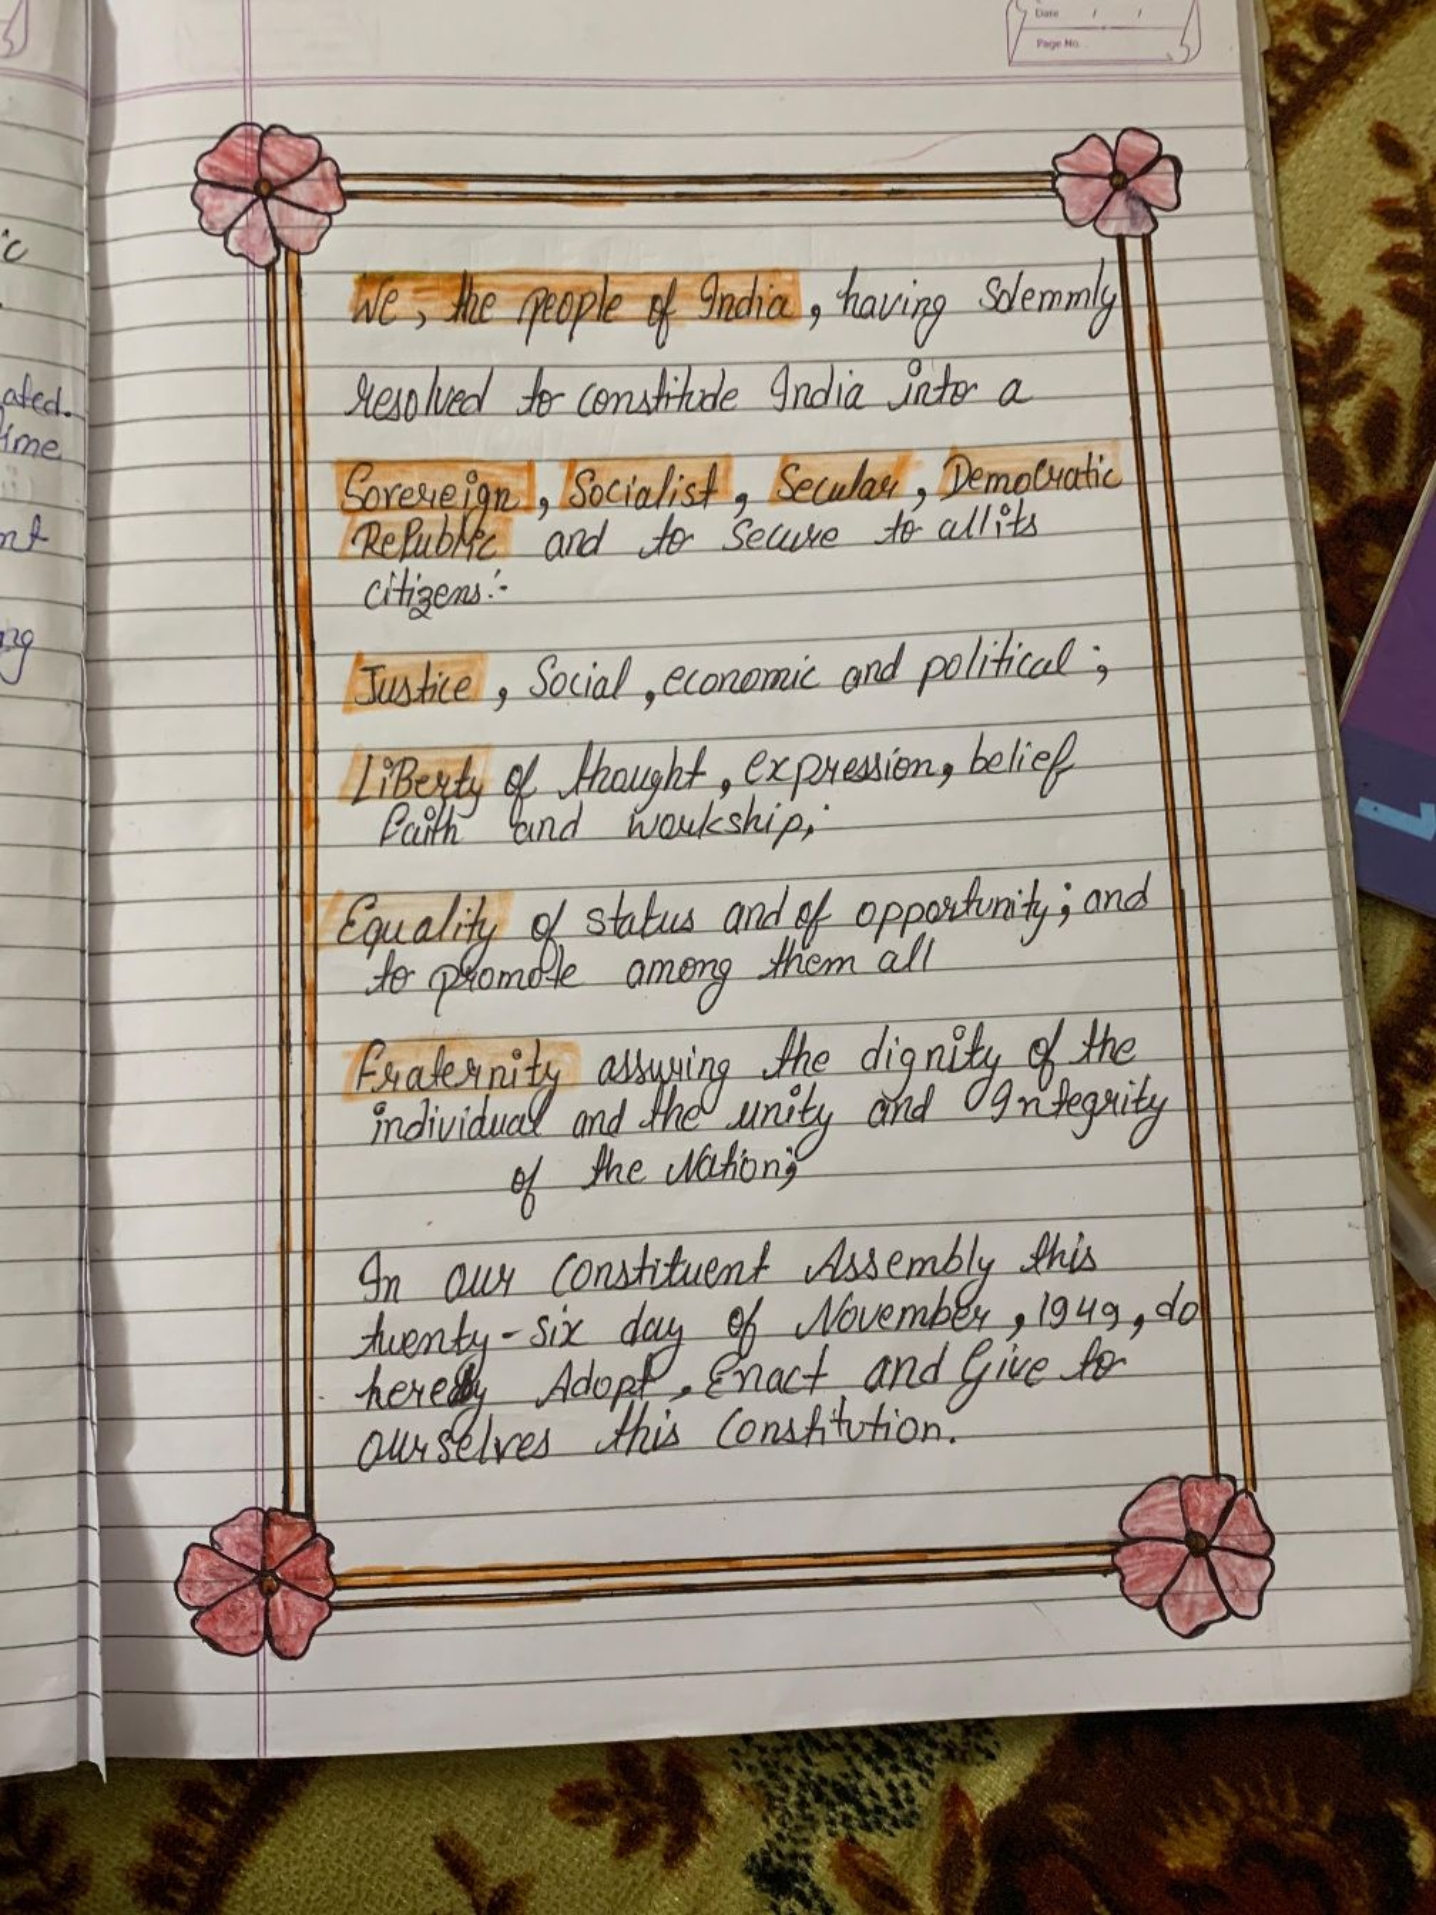 Date / /
Page No.
ic
ated.
ime
nt
ng
We, the people of India, having Solemmly
resolved to constitude India into a
Sorereign, Socialist, Secular, Democratic
RePublic and to Secure to all its
citizens:-
Justice, Social, economic and political;
LiBerty of thought, expression, belief
faith and workship;
Equality of status and of opportunity; and
to promote among them all
Fraternity assuring the dignity of the
individual and the unity and Integrity
of the Nation;
In our Constituent Assembly this
twenty-six day of November, 1949, do
hereby Adopt, Enact and Give to
ourselves this Constitution.